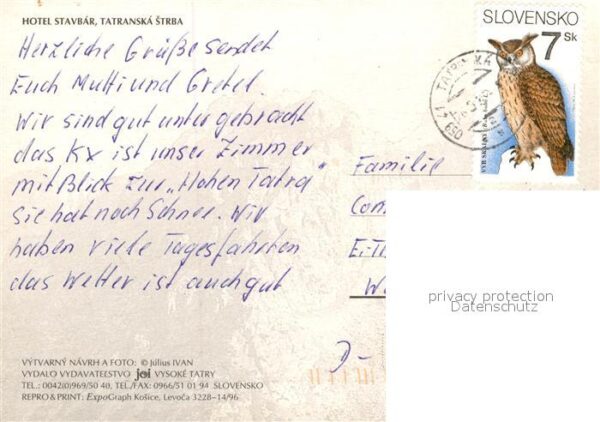 HOTEL STAVBÁR, TATRANSKÁ ŠTRBA
Herzliche Grüße sendet
Euch Mutti und Gretel.
Wir sind gut untergebracht
das Kx ist unser Zimmer
mit Blick zur „Hohen Tatra"
Sie hat noch Schnee. Wir
haben viele Tagesfahrten
das Wetter ist auch gut
VÝTVARNÝ NÁVRH A FOTO: © Július IVAN
VYDALO VYDAVATEĽSTVO joi VYSOKÉ TATRY
TEL.: 0042(0)969/50 40, TEL./FAX: 0966/51 01 94 SLOVENSKO
REPRO & PRINT: ExpoGraph Košice, Levoča 3228–14/96
SLOVENSKO
7 Sk
059 41
Familie
D-
privacy protection
Datenschutz